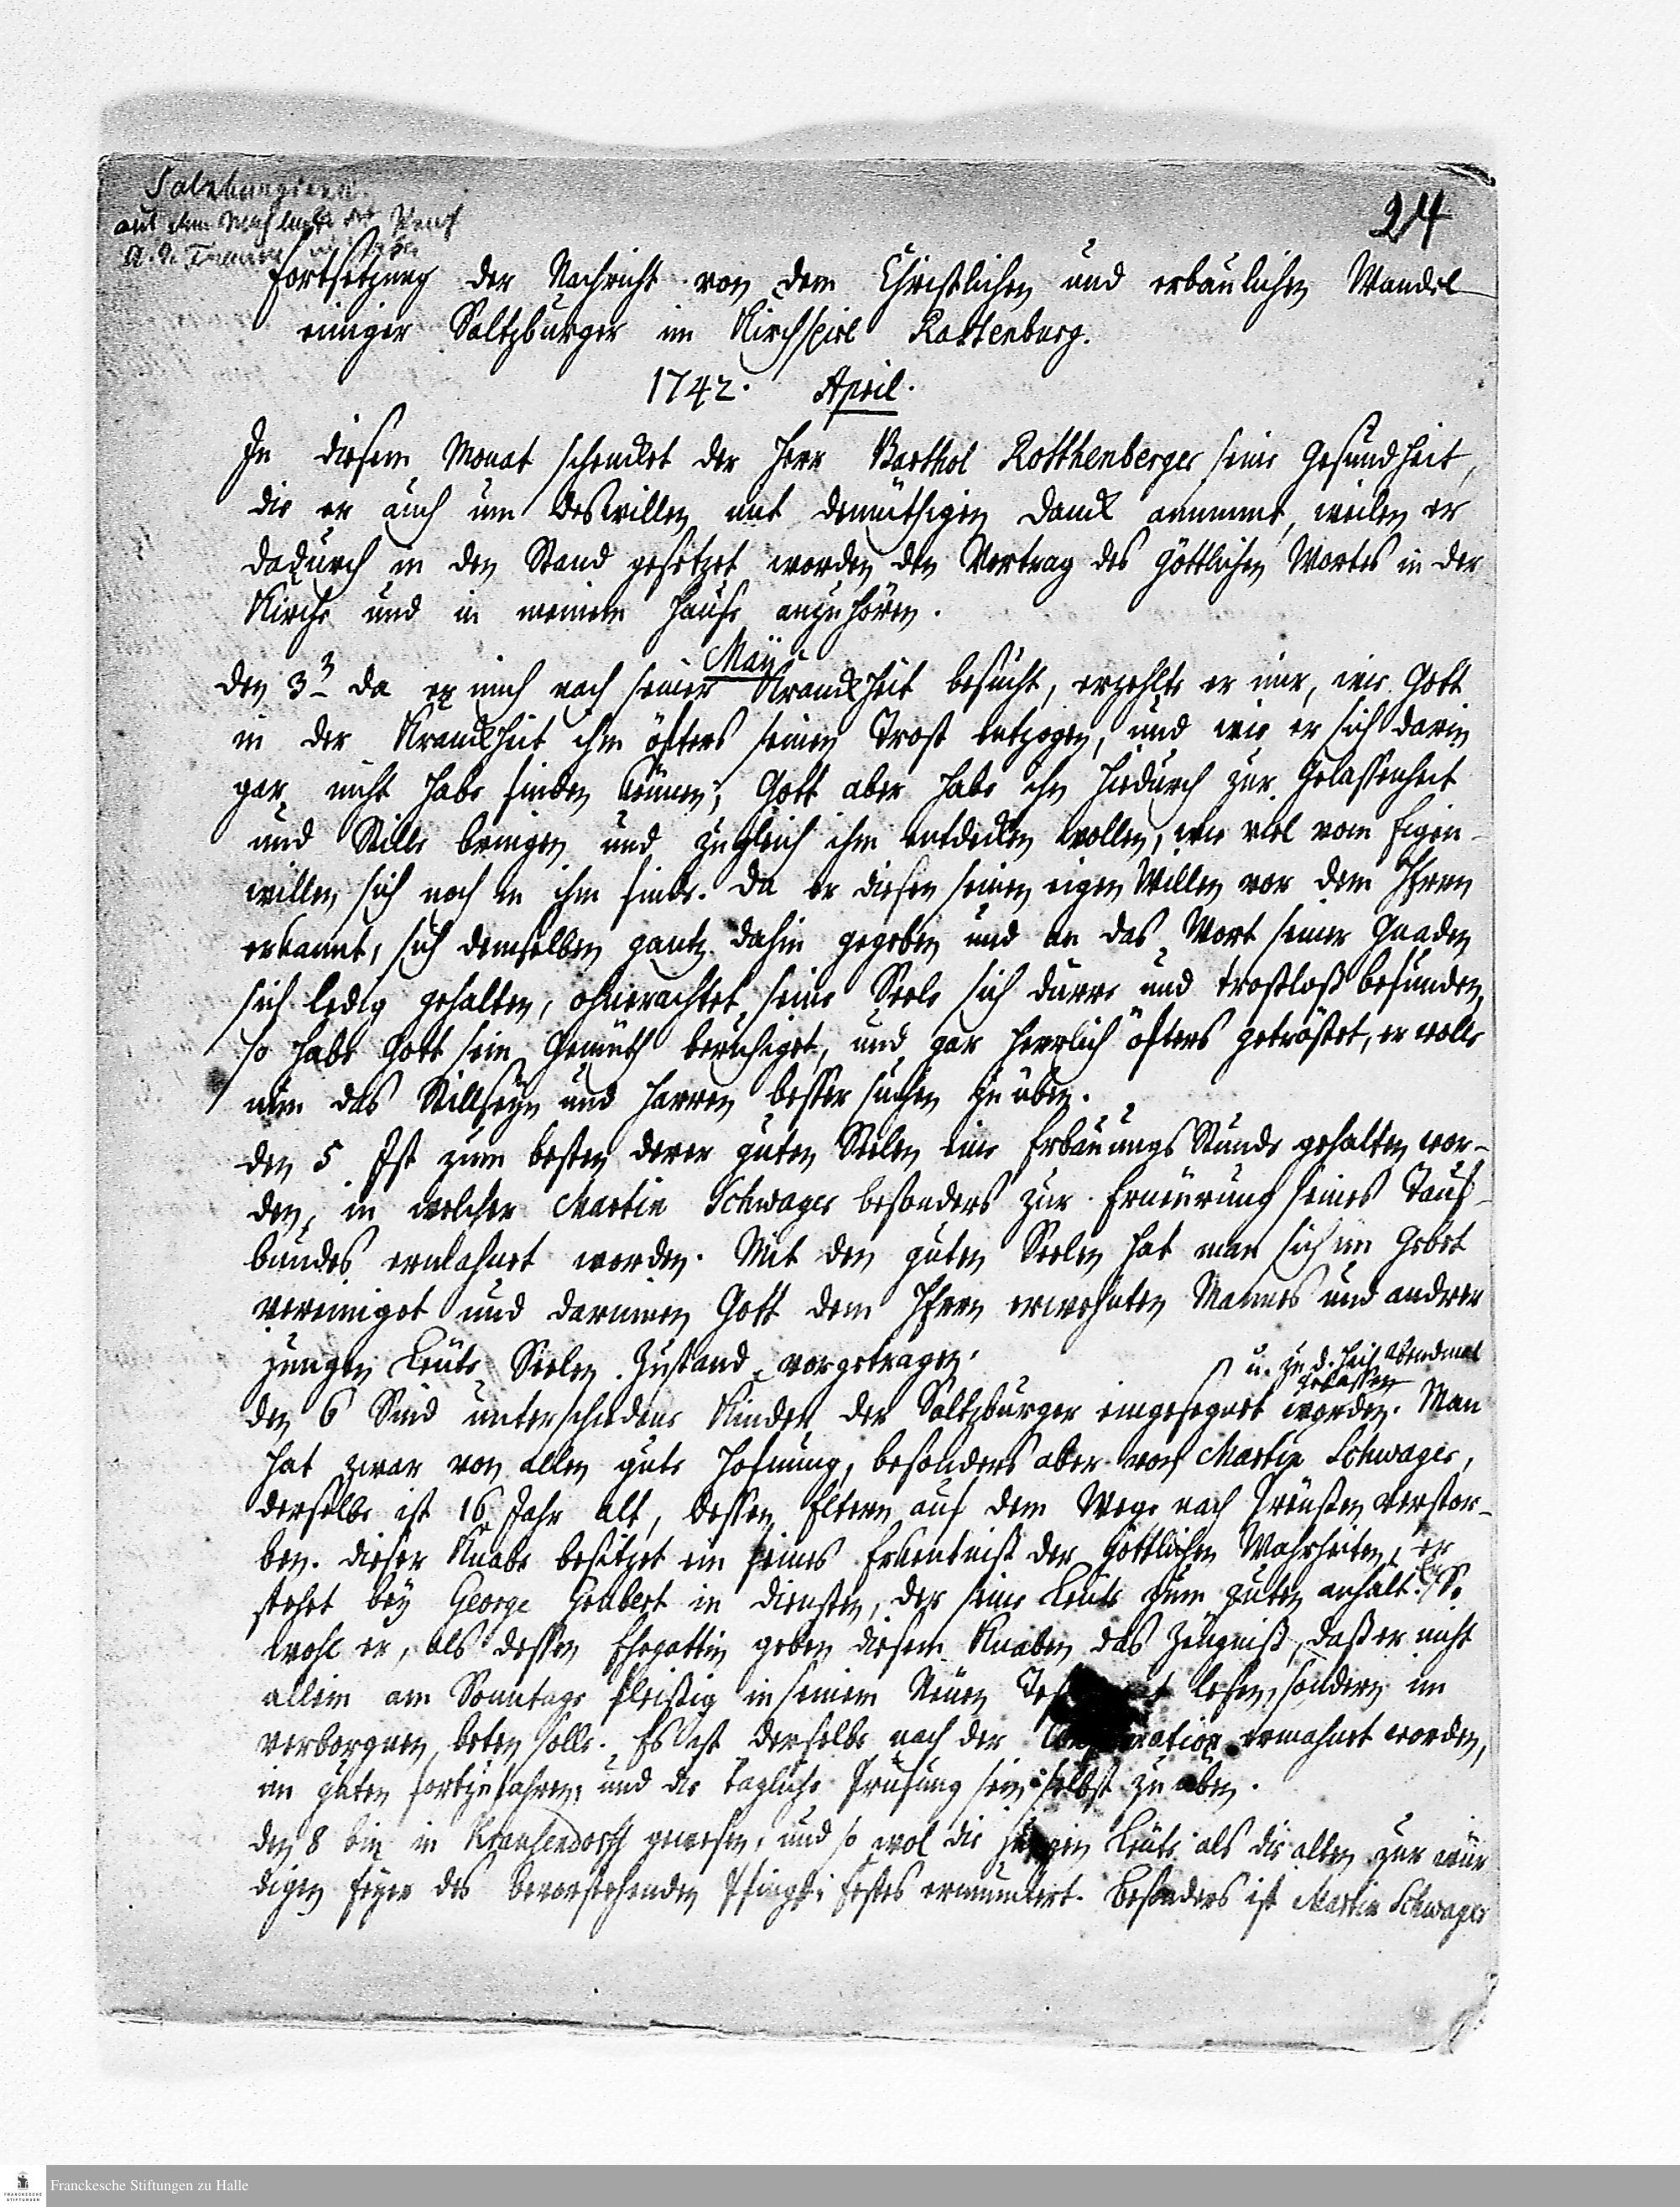 Salzburgiern.
aus dem
24
Fortsetzung der Nachricht von dem Christlichen und erbaulichen Wandel
einiger Saltzburger im Kirchspiel Rastenburg.
1742. April.
In diesem Monat schencket der Herr Barthol Rotthenberger seine Gesundheit,
die er auch um deswillen mit demüthigen Danck annimmt, weilen er
dadurch in den Stand gesetzet worden den Vortrag des Göttlichen Wortes in der
Kirche und in meinem Hause anzuhören.
May
den 3ᵗ da er mich nach seiner Kranckheit besucht, erzehlte er mir, wie Gott
in der Kranckheit ihm öfters seinen Trost entzogen, und wie er sich darin
gar nicht habe finden können; Gott aber habe ihn hiedurch zur Gelassenheit
und Stille bringen und zugleich ihm entdecken wollen, wie viel vom Eigen-
willen sich noch in ihm finde. Da er diesen seinen eigen Willen vor dem HErrn
erkannt, sich demselben gantz dahin gegeben und an das Wort seiner Gnaden
sich ledig gehalten, ohnerachtet seine Seele sich dürre und trostloß befunden,
so habe Gott sein Gemüth beruhiget, und gar herrlich öfters getröstet, er wolle
nun das Stillseyn und Harren besser suchen zu üben.
den 5 Ist zum besten derer guten Seelen eine Erbauungs Stunde gehalten wor-
den, in welcher Martin Schwager besonders zur Erneurung seines Tauf-
bundes ermahnet worden. Mit den guten Seelen hat man sich im Gebet
vereiniget und darinnen Gott dem HErrn erwehnten Mannes und andrer
jungen Leute Seelen Zustand vorgetragen.
u. zu d. heil Abendmal
gelassen
den 6 Sind unterschiedene Kinder der Saltzburger eingesegnet worden. Man
hat zwar von allen gute Hofnung, besonders aber von Martin Schwager,
derselbe ist 16 Jahr alt, dessen Eltern auf dem Wege nach Preußen verstor-
ben. dieser Knabe besitzet ein feines Erkentniß der Göttlichen Wahrheiten, er
stehet bey George Grubert in Diensten, der seine Leute zum guten anhält. So
wohl er, als dessen Ehegattin geben diesem Knaben das Zeugniß, daß er nicht
allein am Sonntage fleißig in seinem Neuen lesen, sondern im
verborgnen beten solle. Es ist derselbe nach der ermahnet worden,
im guten fortzufahren, und die tägliche Prüfung sein selbst zu üben.
den 8 bin in Krausendorff gewesen, und so wol die jungen Leute als die alten zur wür
digen Feyer des bevorstehenden Pfingst Festes ermuntert. Besonders ist Martin Schwager
Franckesche Stiftungen zu Halle
FRANCKESCHE
STIFTUNGEN